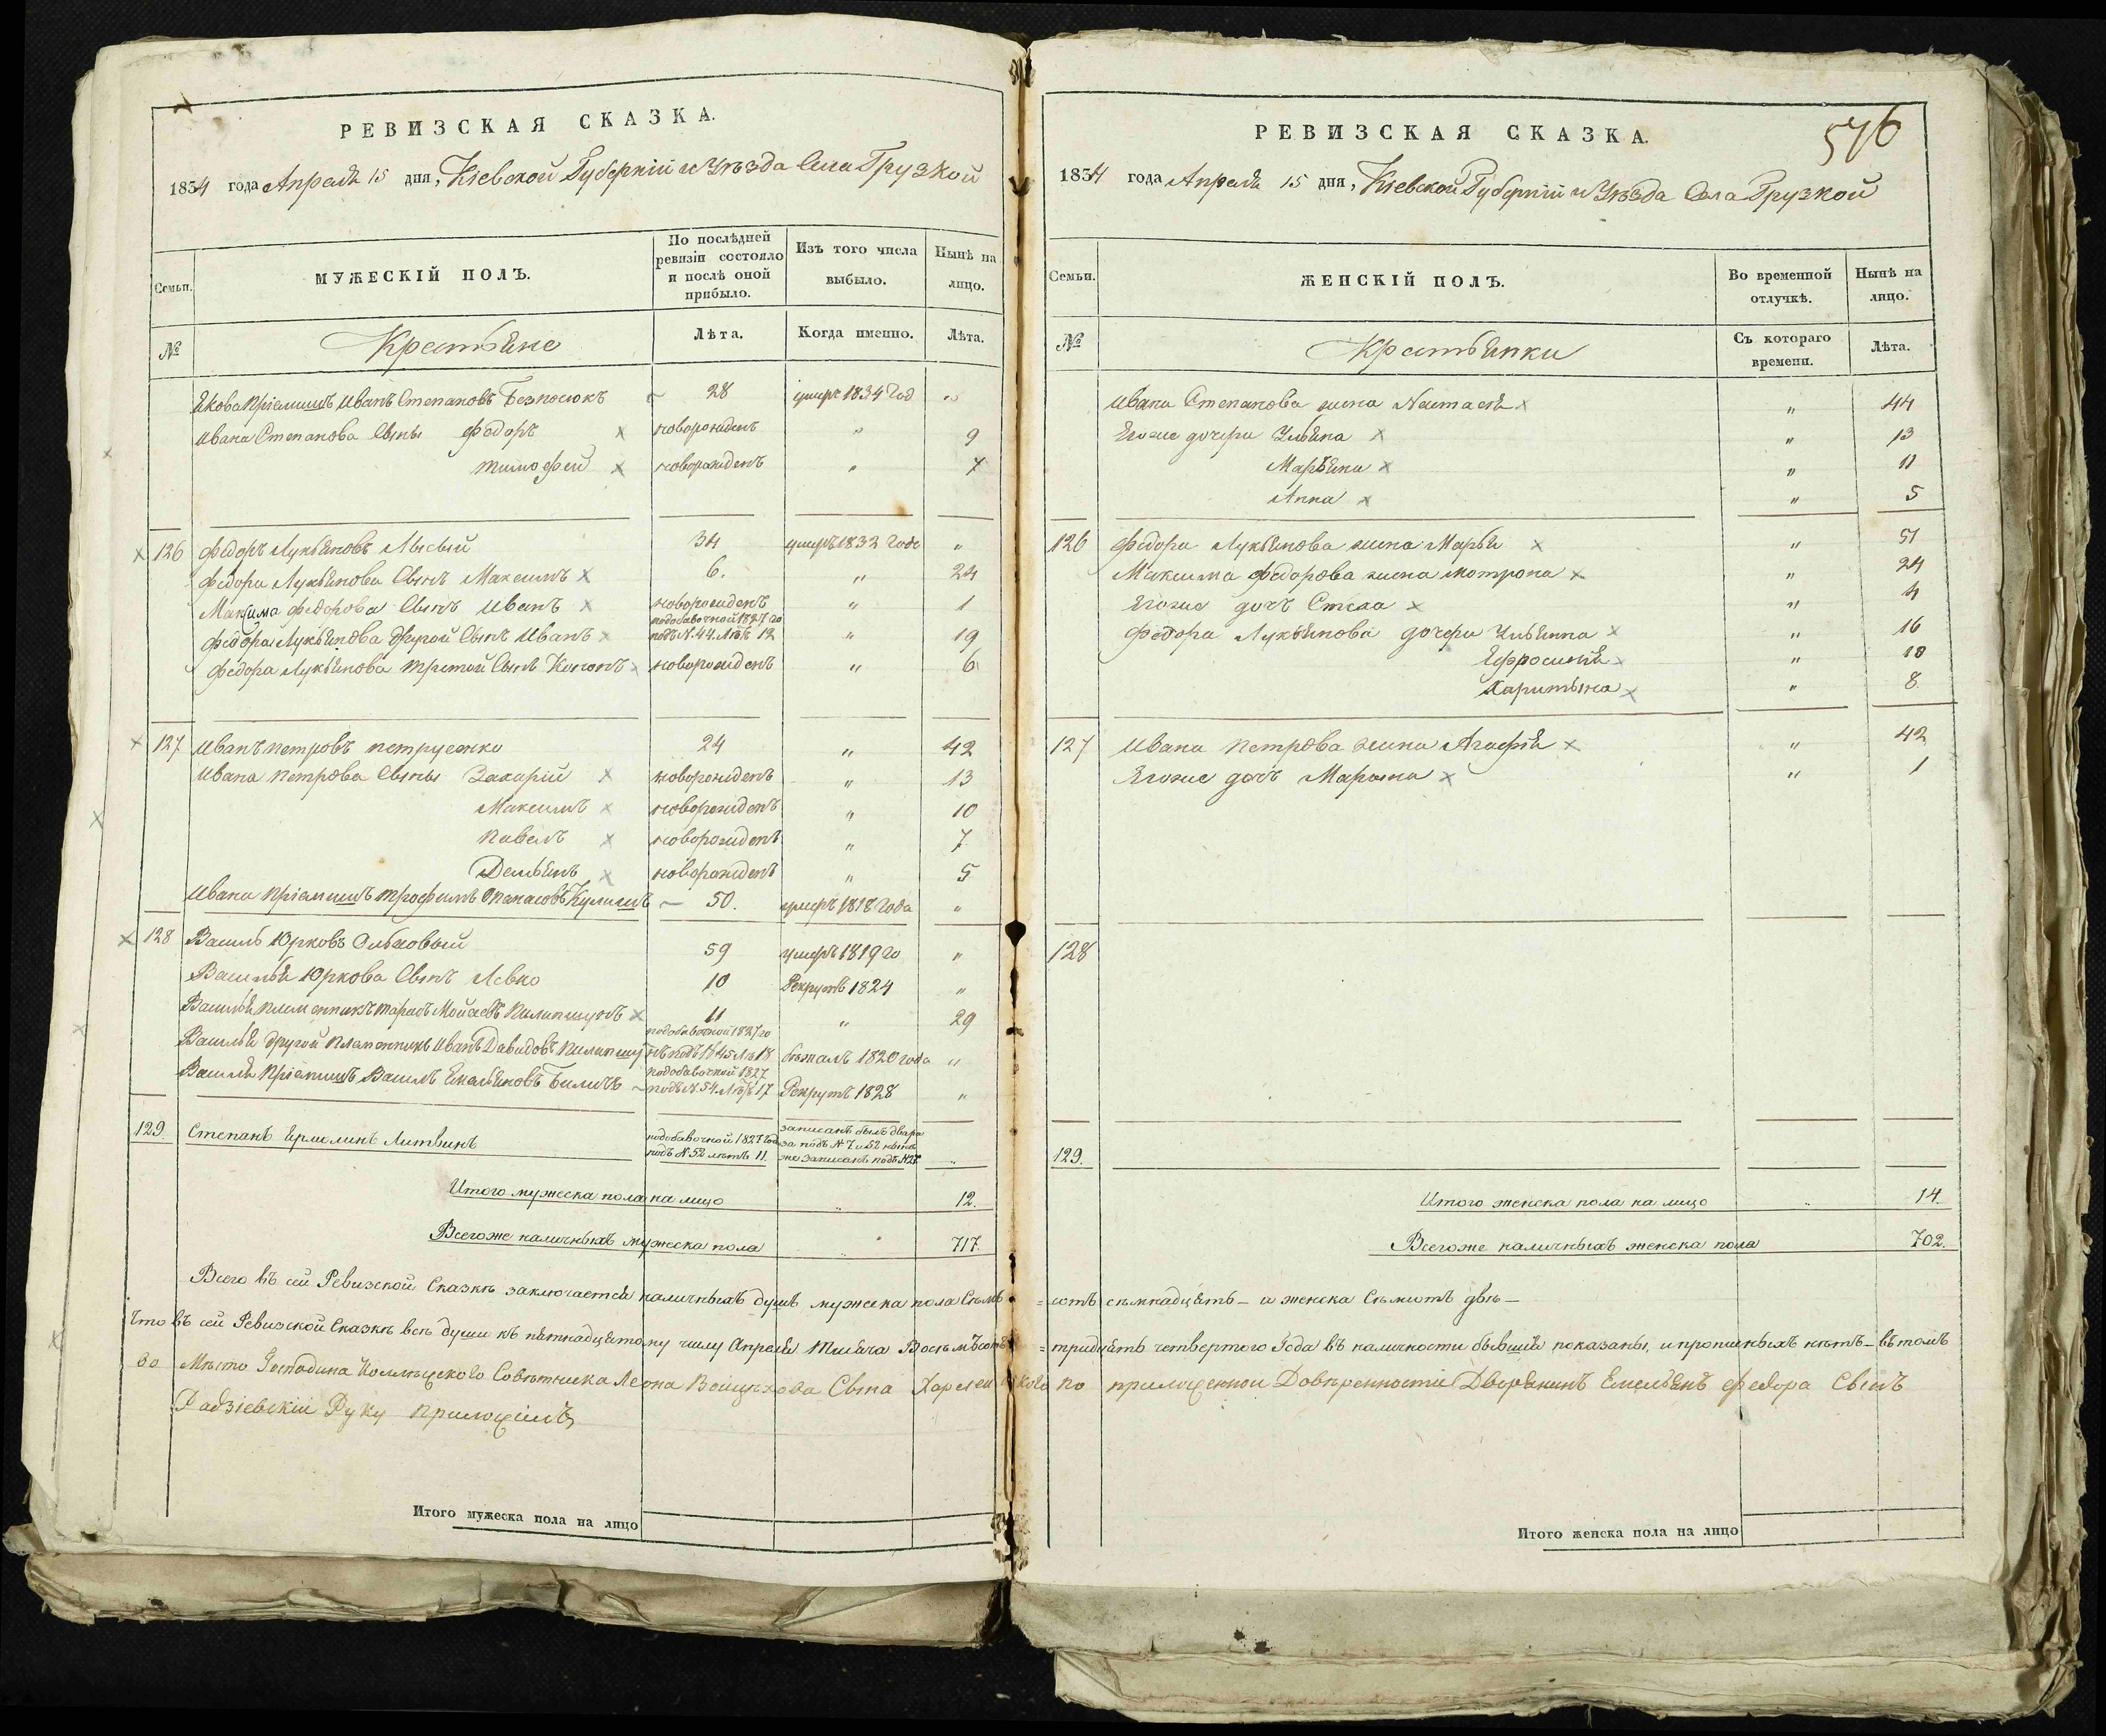 РЕВИЗСКАЯ СКАЗКА.
1834 года Апреля 15 дня, Кіевской Губерніи и Уѣзда Села Грузкой
Семьи.
МУЖЕСКІЙ ПОЛЪ.
По послѣдней ревизіи состояло и послѣ оной прибыло.
Изъ того числа выбыло.
Нынѣ на лицо.
№
Крестьяне
Лѣта.
Когда именно.
Лѣта.
Якова пріемышъ Иванъ Степановъ Безносюкъ 28 умеръ 1834 Год „
Ивана Степанова Сыны Федоръ новорожденъ „ 9
Тимофей новорожденъ „ 7
126 Федоръ Лукьяновъ Лысый 34 умеръ 1832 Года „
Федора Лукьянова Сынъ Максимъ 6. „ 24
Максима Федорова Сынъ Иванъ новорожденъ „ 1
Федора Лукьянова другой Сынъ Иванъ подобавочной 1827 го подъ N. 44. Лѣтъ 12 „ 19
Федора Лукьянова третой Сынъ Кононъ новорожденъ „ 6
127 Иванъ Петровъ Петрусенко 24 „ 42
Ивана Петрова Сыны Захарій новорожденъ „ 13
Максимъ новорожденъ „ 10
Павелъ новорожденъ „ 7
Демьянъ новорожденъ „ 5
Ивана пріемышъ Трофимъ Опанасовъ Кулишъ 50. умеръ 1818 Года „
128 Василь Юрковъ 59 умеръ 1819 го „
Василья Юркова Сынъ Левко 10 Рекрутъ 1824 „
Василья племенникъ Тарасъ Мойсеевъ 11 „ 29
Василья другой племенникъ Иванъ Давидовъ подобавочной 1827 го бежалъ 1820 года „
Василья пріемышъ Василь Емельяновъ подобавочной 1827 подъ N. 54. Лѣтъ 17 Рекрутъ 1828 „
129. Степанъ Ермолинъ Литвинъ подобавочной 1827 года подъ N 52 лѣтъ 11. записанъ былъ двара за подъ N 7 и 52 нынѣ же записанъ подъ N „
Итого мужеска пола на лицо „ 12.
Всегоже наличныхъ мужеска пола 717.
РЕВИЗСКАЯ СКАЗКА.
576
1834 года Апреля 15 дня, Кіевской Губерніи и Уѣзда Села Грузкой
Семьи.
ЖЕНСКІЙ ПОЛЪ.
Во временной отлучкѣ.
Нынѣ на лицо.
№
Крестьянки
Съ котораго времени.
Лѣта.
Ивана Степанова жена Настасія „ 44
Егоже дочери Ульяна „ 13
Марьяна „ 11
Анна „ 5
126 Федора Лукьянова жена Марья „ 51
Максима Федорова жена Мотрона „ 24
Егоже дочь Стеха „ 4
Федора Лукьянова дочери Ульянна „ 16
Ефросинія „ 10
Харитына „ 8
127 Ивана Петрова жена Агафія „ 42
Егоже дочь „ 1
128
129.
Итого женска пола на лицо „ 14.
Всегоже наличныхъ женска пола 702.
Всего въ сей Ревизской Сказкѣ заключается наличныхъ душъ мужеска пола Семь=сотъ семнадцять – и женска Семьсотъ двѣ –
Что въ сей Ревизской Сказкѣ всѣ души къ пятнадцятому числу Апреля тысяча Восемьсотъ=тридцять четвертого Года въ наличности бывшія показаны, и прописныхъ нѣтъ – въ томъ
во Мѣсто Господина Совѣтника Леона Войцехова Сына по приложенной Доверенности Дворянинъ Емельянъ Федора Сынъ
Радзіевскій Руку приложилъ
Итого мужеска пола на лицо
Итого женска пола на лицо